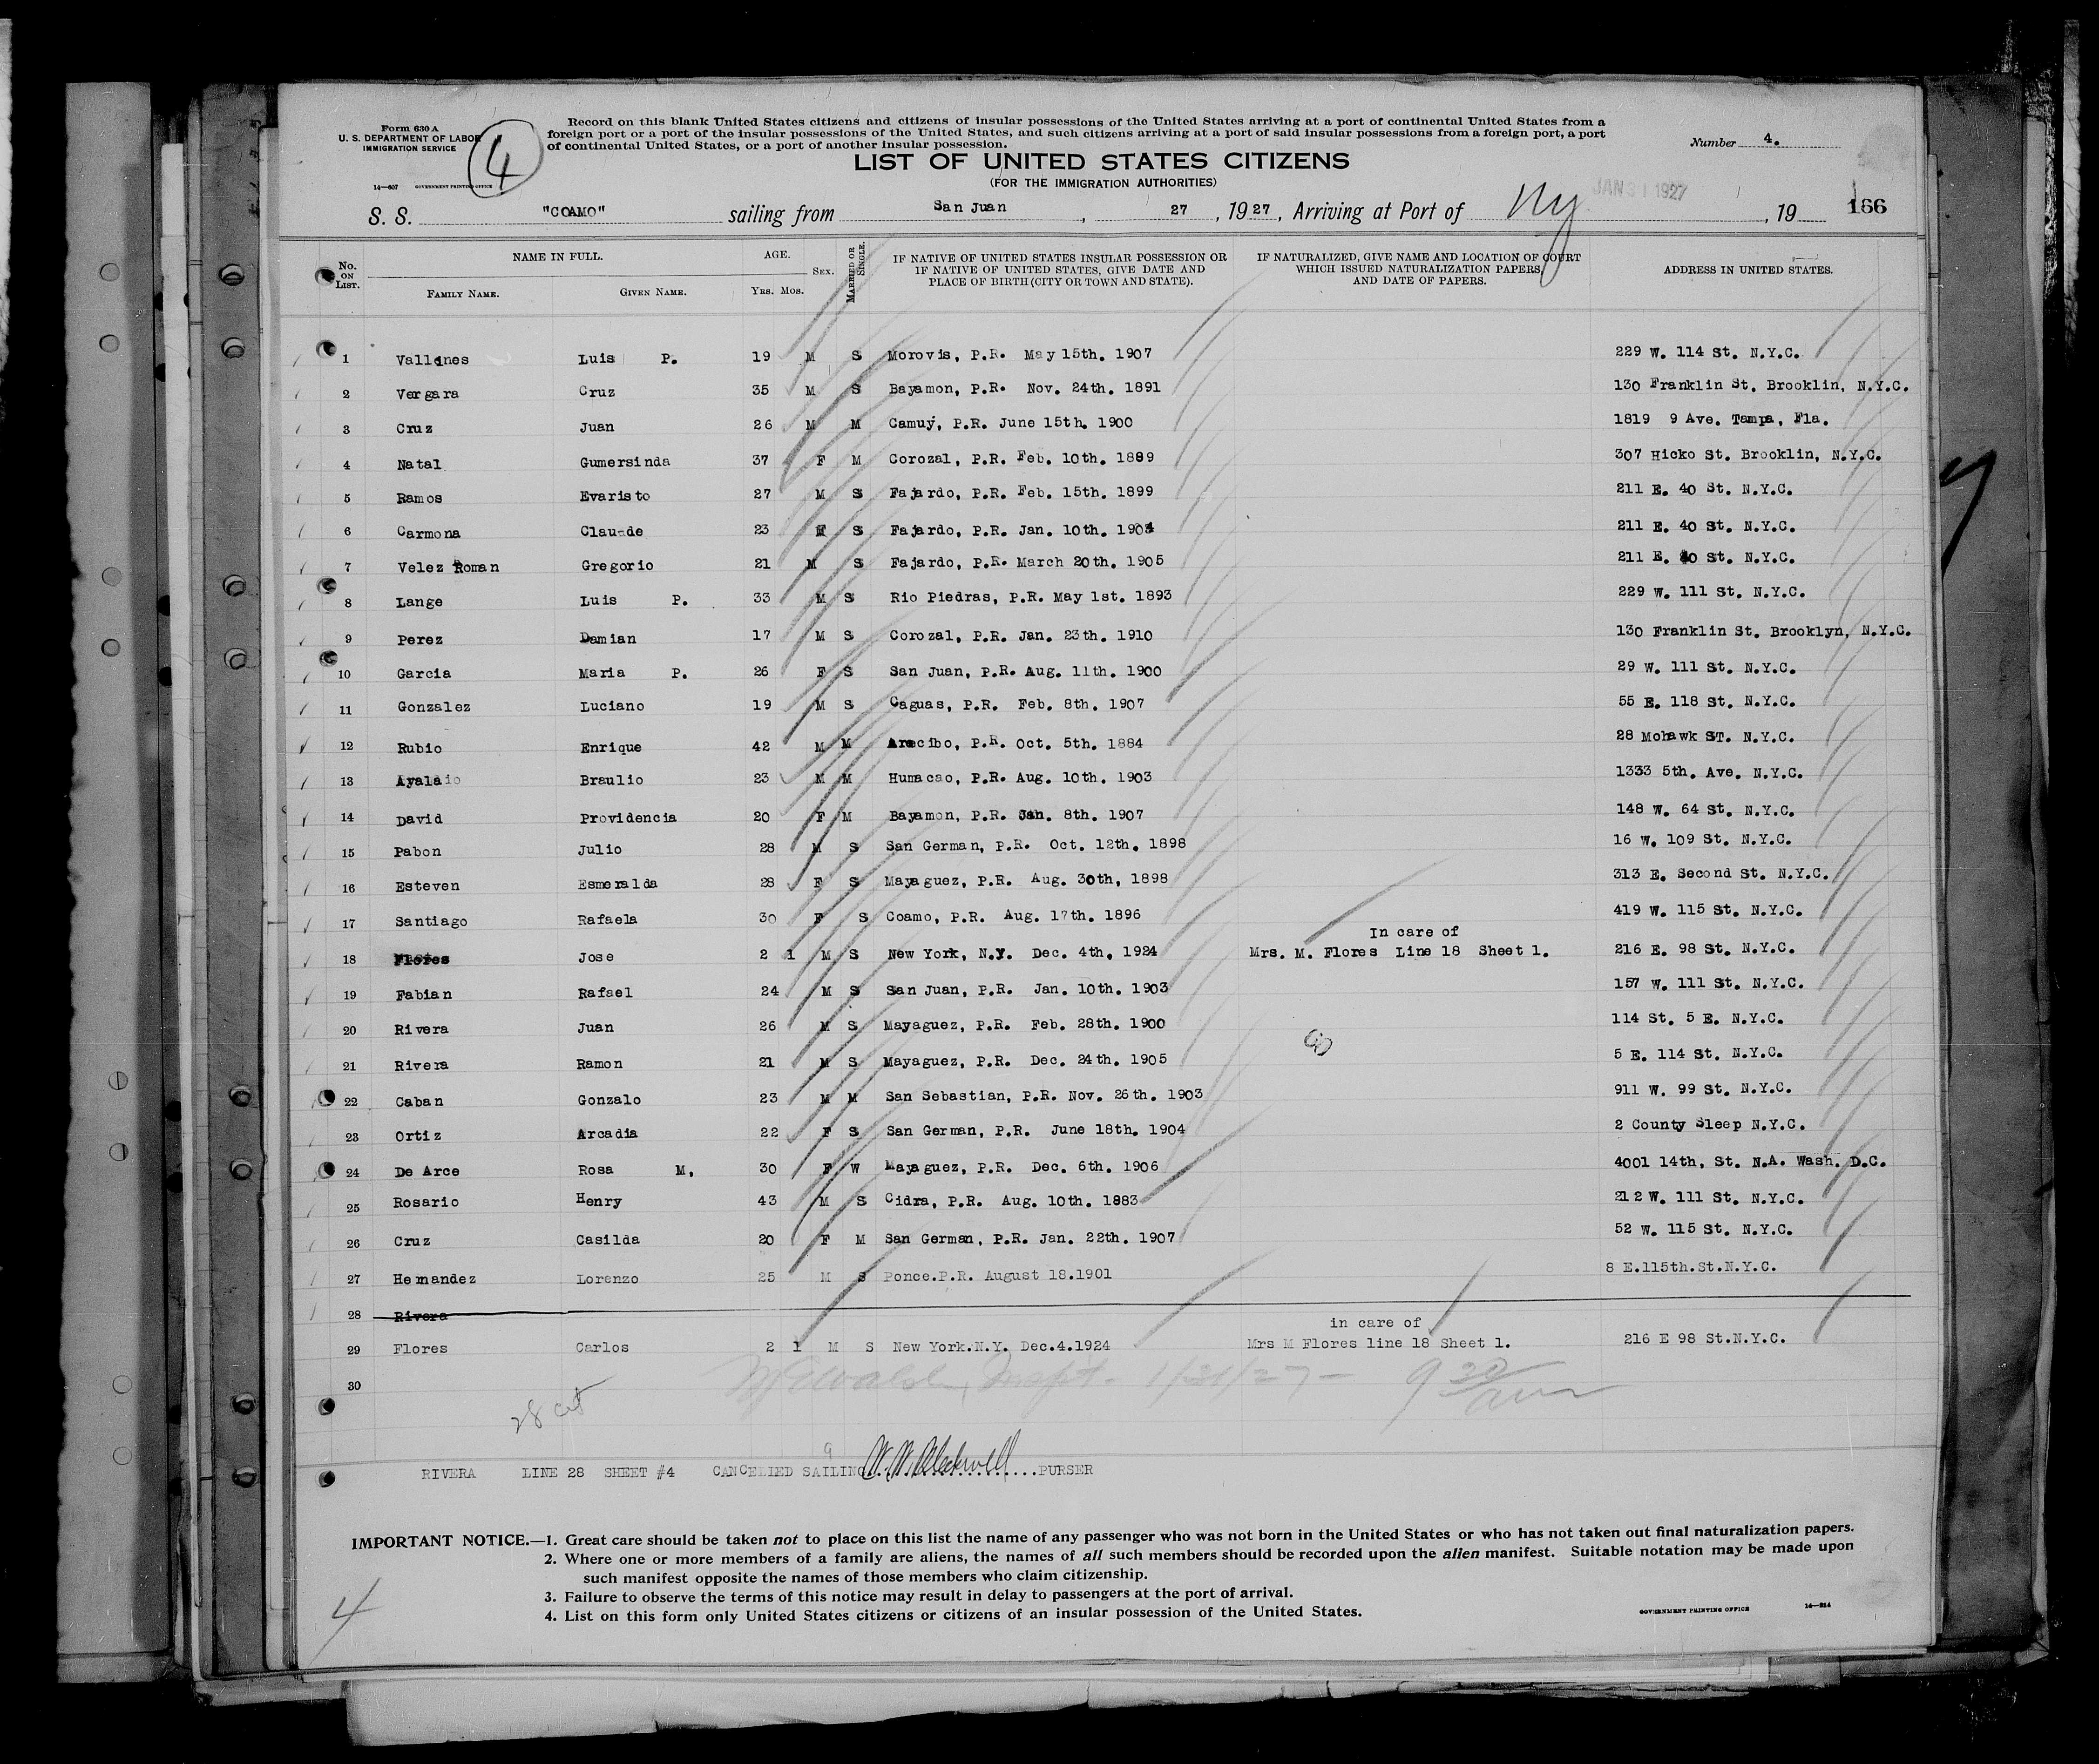 Form 630 A
U. S. DEPARTMENT OF LABOR
IMMIGRATION SERVICE
14—607 GOVERNMENT PRINTING OFFICE
4
Record on this blank United States citizens and citizens of insular possessions of the United States arriving at a port of continental United States from a
foreign port or a port of the insular possessions of the United States, and such citizens arriving at a port of said insular possessions from a foreign port, a port
of continental United States, or a port of another insular possession.
Number 4.
LIST OF UNITED STATES CITIZENS
(FOR THE IMMIGRATION AUTHORITIES)
JAN 31 1927
S. S. "COAMO" sailing from San Juan , 27 , 1927 , Arriving at Port of Ny , 19 166
No. ON LIST. NAME IN FULL. FAMILY NAME. GIVEN NAME. AGE. YRS. MOS. SEX. MARRIED OR SINGLE. IF NATIVE OF UNITED STATES INSULAR POSSESSION OR IF NATIVE OF UNITED STATES, GIVE DATE AND PLACE OF BIRTH (CITY OR TOWN AND STATE). IF NATURALIZED, GIVE NAME AND LOCATION OF COURT WHICH ISSUED NATURALIZATION PAPERS, AND DATE OF PAPERS. ADDRESS IN UNITED STATES.
1 Vallenes Luis P. 19 M S Morovis, P.R. May 15th. 1907 229 W. 114 St. N.Y.C.
2 Vergara Cruz 35 M S Bayamon, P.R. Nov. 24th. 1891 130 Franklin St. Brooklin, N.Y.C.
3 Cruz Juan 26 M M Camuy, P.R. June 15th. 1900 1819 9 Ave. Tampa, Fla.
4 Natal Gumersinda 37 F M Corozal, P.R. Feb. 10th. 1889 307 Hicko St. Brooklin, N.Y.C.
5 Ramos Evaristo 27 M S Fajardo, P.R. Feb. 15th. 1899 211 E. 40 St. N.Y.C.
6 Carmona Claude 23 S Fajardo, P.R. Jan. 10th. 1904 211 E. 40 St. N.Y.C.
7 Velez Roman Gregorio 21 M S Fajardo, P.R. March 20th. 1905 211 E. 40 St. N.Y.C.
8 Lange Luis P. 33 M S Rio Piedras, P.R. May 1st. 1893 229 W. 111 St. N.Y.C.
9 Perez Damian 17 M S Corozal, P.R. Jan. 23th. 1910 130 Franklin St. Brooklyn, N.Y.C.
10 Garcia Maria P. 26 F S San Juan, P.R. Aug. 11th. 1900 29 W. 111 St. N.Y.C.
11 Gonzalez Luciano 19 M S Caguas, P.R. Feb. 8th. 1907 55 E. 118 St. N.Y.C.
12 Rubio Enrique 42 M M Arecibo, P.R. Oct. 5th. 1884 28 Mohawk ST. N.Y.C.
13 Ayala Braulio 23 M M Humacao, P.R. Aug. 10th. 1903 1333 5th. Ave. N.Y.C.
14 David Providencia 20 F M Bayamon, P.R. Jan. 8th. 1907 148 W. 64 St. N.Y.C.
15 Pabon Julio 28 M S San German, P.R. Oct. 12th. 1898 16 W. 109 St. N.Y.C.
16 Esteven Esmeralda 28 F S Mayaguez, P.R. Aug. 30th, 1898 313 E. Second St. N.Y.C.
17 Santiago Rafaela 30 F S Coamo, P.R. Aug. 17th. 1896 419 W. 115 St. N.Y.C.
In care of
18 Flores Jose 2 1 M S New York, N.Y. Dec. 4th, 1924 Mrs. M. Flores Line 18 Sheet 1. 216 E. 98 St. N.Y.C.
19 Fabian Rafael 24 M S San Juan, P.R. Jan. 10th. 1903 157 W. 111 St. N.Y.C.
20 Rivera Juan 26 M S Mayaguez, P.R. Feb. 28th. 1900 114 St. 5 E. N.Y.C.
21 Rivera Ramon 21 M S Mayaguez, P.R. Dec. 24th. 1905 5 E. 114 St. N.Y.C.
22 Caban Gonzalo 23 M M San Sebastian, P.R. Nov. 26th. 1903 911 W. 99 St. N.Y.C.
23 Ortiz Arcadia 22 F S San German, P.R. June 18th. 1904 2 County Sleep N.Y.C.
24 De Arce Rosa M, 30 F W Mayaguez, P.R. Dec. 6th. 1906 4001 14th, St. N.A. Wash. D.C.
25 Rosario Henry 43 M S Cidra, P.R. Aug. 10th. 1883 212 W. 111 St. N.Y.C.
26 Cruz Casilda 20 F M San German, P.R. Jan. 22th. 1907 52 W. 115 St. N.Y.C.
27 Hernandez Lorenzo 25 M S Ponce.P.R. August 18.1901 8 E.115th.St.N.Y.C.
28 Rivera
in care of
29 Flores Carlos 2 1 M S New York.N.Y. Dec.4.1924 Mrs M Flores line 18 Sheet 1. 216 E 98 St.N.Y.C.
30
Inspt. 1/31/27 - 9 30 am
28 cit
9
RIVERA LINE 28 SHEET #4 CANCELLED SAILING W. W. Blackwell PURSER
IMPORTANT NOTICE.—1. Great care should be taken not to place on this list the name of any passenger who was not born in the United States or who has not taken out final naturalization papers.
2. Where one or more members of a family are aliens, the names of all such members should be recorded upon the alien manifest. Suitable notation may be made upon
such manifest opposite the names of those members who claim citizenship.
3. Failure to observe the terms of this notice may result in delay to passengers at the port of arrival.
4. List on this form only United States citizens or citizens of an insular possession of the United States.
GOVERNMENT PRINTING OFFICE 14—214
4